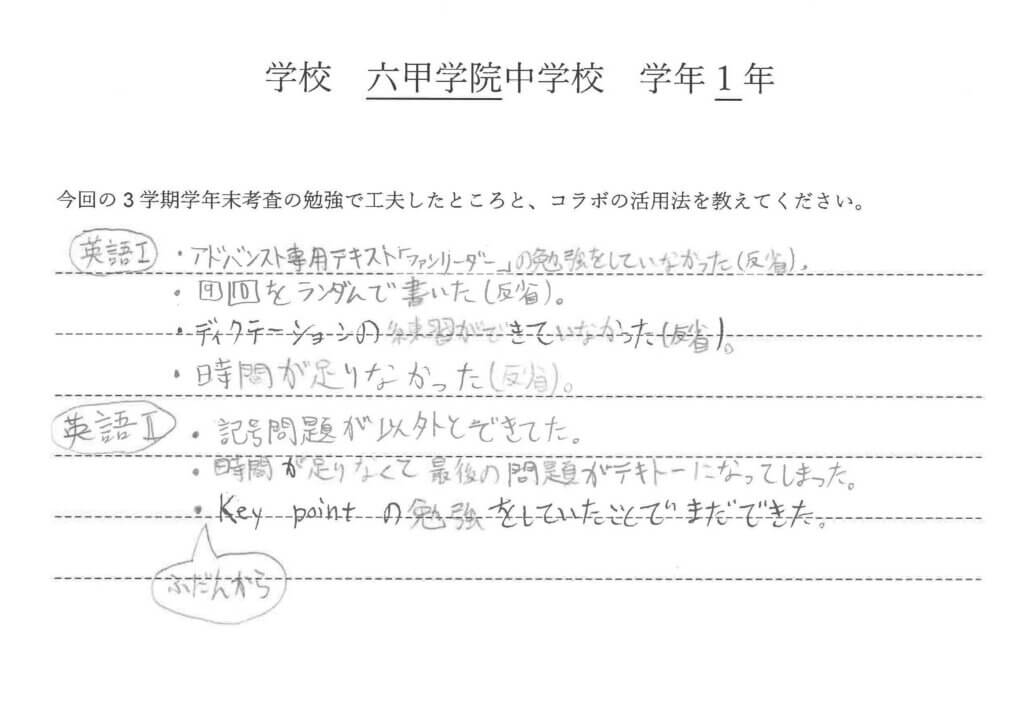 学校 六甲学院中学校 学年1年
今回の3学期学年末考査の勉強で工夫したところと、コラボの活用法を教えてください。
英語I ・アドバンスト専用テキスト「ファンリーダー」の勉強をしていなかった(反省)。
・9 10をランダムで書いた(反省)。
・ディクテーションの練習ができていなかった(反省)。
・時間が足りなかった(反省)。
英語II ・記号問題が以外とできてた。
・時間が足りなくて最後の問題がテキトーになってしまった。
・Key pointの勉強をしていたことでまだできた。
ふだんから